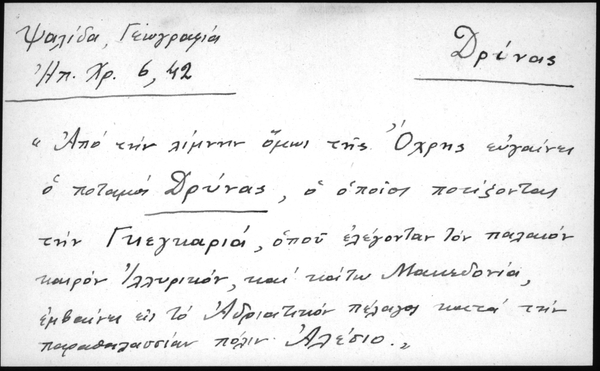 Ψαλίδα, Γεωγραφία
Ἠπ. Χρ. 6, 42
Δρύνας
« Ἀπό τήν λίμνην ὅμως τῆς Ὄχρης εὐγαίνει
ὁ ποταμός Δρύνας, ὁ ὁποῖος ποτίζοντας
τήν Γκεγκαριά, ὁποῦ ἐλέγονταν τόν παλαιόν
καιρόν Ἰλλυρικόν, καί κάτω Μακεδονία,
ἐμβαίνει εἰς τό Ἀδριατικόν πέλαγος κατά τήν
παραθαλασσίαν πόλιν Ἀλέσιο. »